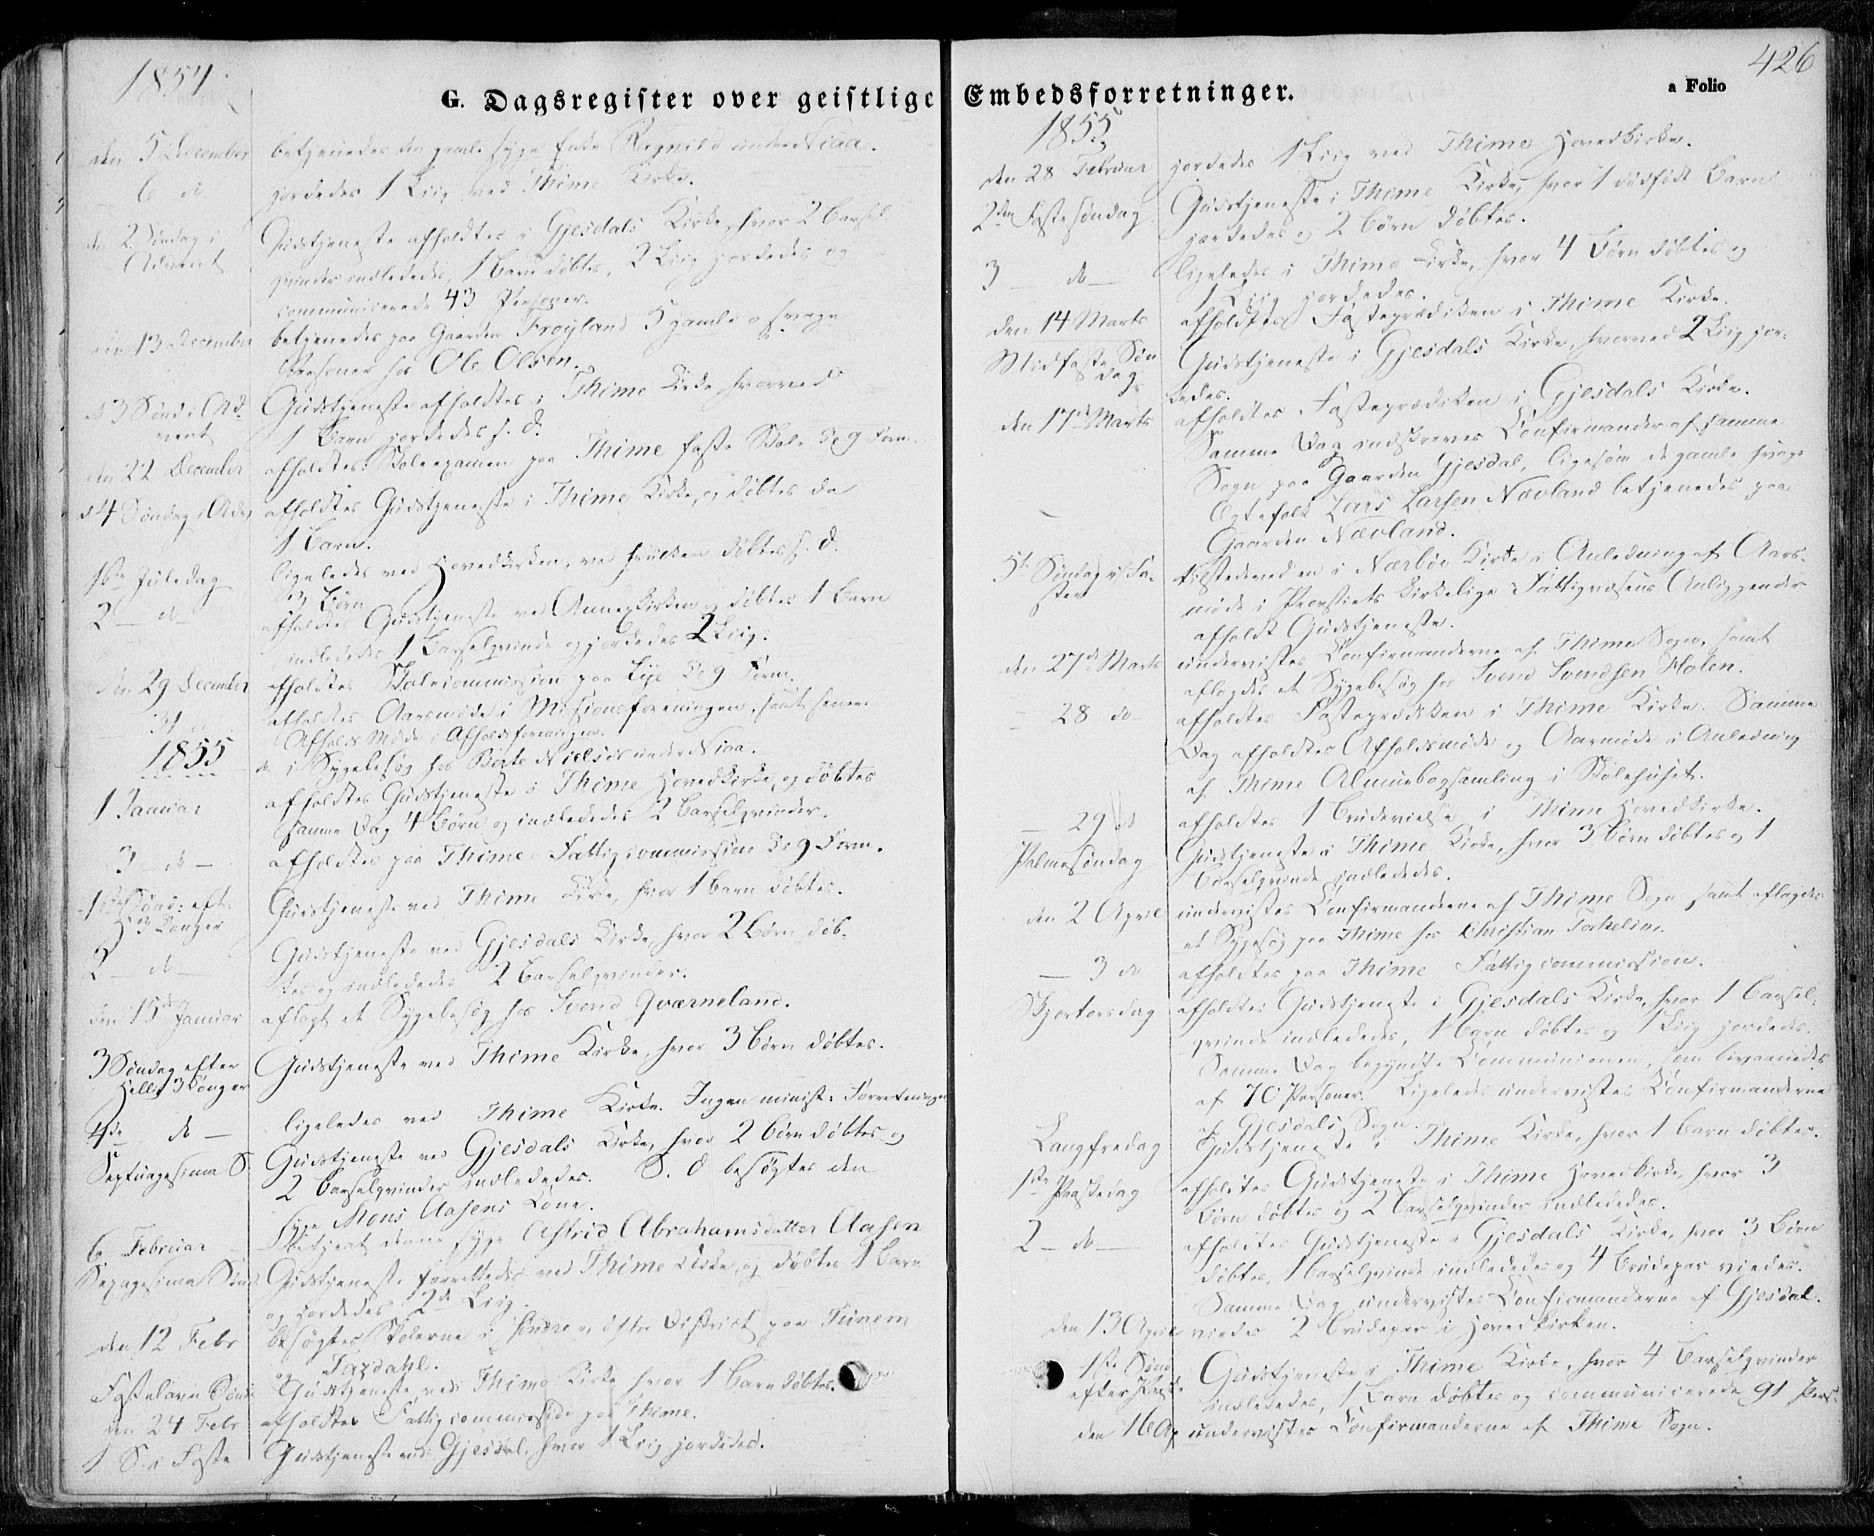 1854.
G. Dagsregister over geistlige Embedsforretninger.
a Folio
426
den 5 December betjenedes den gamle syge Enke Ragnild under Liaa.
6 d. jordedes 1 Liig ved Thime Kirke.
den 2 Søndag i Advent Gudstjeneste afholdtes i Gjesdals Kirke, hvor 2 Barsel-
qvinder indlededes, 1 Barn døbtes, 2 Liig jordedes og
communicerede 43 Personer.
den 13 December betjenedes paa Gaarden Frøyland 5 gamle og svage
Personer hos Ole Olsen.
d. 3 Sønd: i Advent Gudstjeneste afholdtes i Thime Kirke hvorved
1 Barn jordedes s. d.
den 22 December afholdtes Skoleexamen paa Thime faste Skole Kl 9 Form.
d 4 Søndag i Adv afholdtes Gudstjeneste i Thime Kirke, og døbtes da
1 Barn.
1ste Juledag ligeledes ved Hovedkirken, ved hvilken døbtes s. d.
3 Børn
2 – d – afholdtes Gudstjeneste ved Annexkirken og døbtes 1 Barn
indlededes 1 Barselqvinde og jordedes 2 Liig.
den 29 December afholdtes Skolecommission paa Lye Kl 9 Form.
31 afholdtes Aarsmøde i Missionsforeningen, samt senere
Afholds Møde i Afholdsforeningen.
1855
d. i Sygebesøg hos Berte Nielsd. under
1 Januar afholdtes Gudstjeneste i Thime Hovedkirke, og døbtes
samme Dag 4 Børn og indlededes 2 Barselqvinder.
3 – d – afholdtes paa Thime Fattigcommission Kl 9 Form.
1ste Sønd: eft. H 3 Konger Gudstjeneste ved Thime Kirke, hvor 1 Barn døbtes.
2 – d – Gudstjeneste ved Gjesdals Kirke, hvor 2 Børn døb-
tes og indlededes 2 Barselqvinder.
den 15de Januar aflagt et Sygebesøg hos Svend Qværneland.
3 Søndag efter Hellig 3 Konger Gudstjeneste ved Thime Kirke, hvor 3 Børn døbtes.
4de – d – ligeledes ved Thime Kirke. Ingen minist: Forretninger
Septuagesima S. Gudstjeneste ved Gjesdals Kirke, hvor 2 Børn døbtes og
2 Barselqvinder indlededes. S. d besøgtes den
syge Mons Aasens Kone.
6 Februar betjent denne syge Astrid Abrahamsdatter Aasen
Sexagesima Sønd Gudstjeneste forrettedes ved Thime Kirke, og døbtes 1 Barn
og jordedes 2de Liig.
den 12 Febr besøgtes Skolerne i søndre og østre District paa Tunem
og Taxdahl.
Fastelavns Sønd Gudstjeneste ved Thime Kirke hvor 1 Barn døbtes.
den 24 Febr afholdtes Fattigcommission paa Thime.
1 S. i Faste Gudstjeneste ved Gjesdal, hvor 1 Liig jordedes.
1855
den 28 Februar jordedes 1 Liig ved Thime Hovedkirke.
2den Fastesøndag Gudstjeneste i Thime Kirke, hvor 1 dødfødt Barn
jordedes og 2 Børn døbtes.
3 – d – ligeledes i Thime Kirke, hvor 4 Børn døbtes og
1 Liig jordedes.
den 14 Marts afholdtes Fasteprædiken i Thime Kirke.
Midfaste Søndag Gudstjeneste i Gjesdals Kirke, hvorved 2 Liig jor-
dedes.
den 17de Marts afholdtes Fasteprædiken i Gjesdals Kirke.
Samme Dag indskreves Confirmander af samme
Sogn paa Gaarden Gjesdal, ligesom de gamle svage
Egtefolk Lars Larsen Nævland betjenedes paa
Gaarden Nævland.
5te Søndag i Fasten tilstedeved en i Nærbøe Kirke i Anledning af Aars-
møde i Provstiets kirkelige Fattigvæsens Anliggender
afholdt Gudstjeneste.
den 27de Marts undervistes Confirmanderne af Thime Sogn, samt
aflagdes et Sygebesøg hos Svend Svendsen Holen.
– 28 d – afholdtes Fasteprædiken i Thime Kirke. Samme
Dag afholdtes Afholdsmøde og Aarmøde i Anledning
af Thime Almuebogsamling i Skolehuset.
– 29 d afholdtes 1 Brudevielse i Thime Hovedkirke.
Palmesøndag Gudstjeneste i Thime Kirke, hvor 3 Børn døbtes og 1
Barselqvinde indlededes.
den 2 April undervistes Confirmanderne af Thime Sogn samt aflagdes
et Sygebesøg paa Thime hos Christian Torkelsen.
– 3 d afholdtes paa Thime Fattigcommission.
Skjærtorsdag afholdtes Gudstjeneste i Gjesdals Kirke, hvor 1 Barsel-
qvinde indlededes, 1 Barn døbtes og 1 Liig jordedes.
Samme Dag begyndte Communionen, som bivaanedes
af 70 Personer. Ligeledes undervistes Confirmanderne
af Gjesdals Sogn.
Langfredag Gudstjeneste i Thime Kirke, hvor 1 Barn døbtes.
1ste Paaskedag afholdtes Gudstjeneste i Thime Hovedkirke, hvor 3
Børn døbtes og 2 Barselqvinder indlededes.
2 – d – afholdtes Gudstjeneste i Gjesdals Kirke, hvor 3 Børn
døbtes, 1 Barselqvinde indlededes og 4 Brudepar viedes.
Samme Dag undervistes Confirmanderne af Gjesdal.
den 13 April viedes 2 Brudepar i Hovedkirken.
1ste Sønd efter Paaske Gudstjeneste i Thime Kirke, hvor 4 Barselqvinder
indlededes, 1 Barn døbtes og communicerede 91 Pers.
den 16 Ap undervistes Confirmanderne af Thime Sogn.